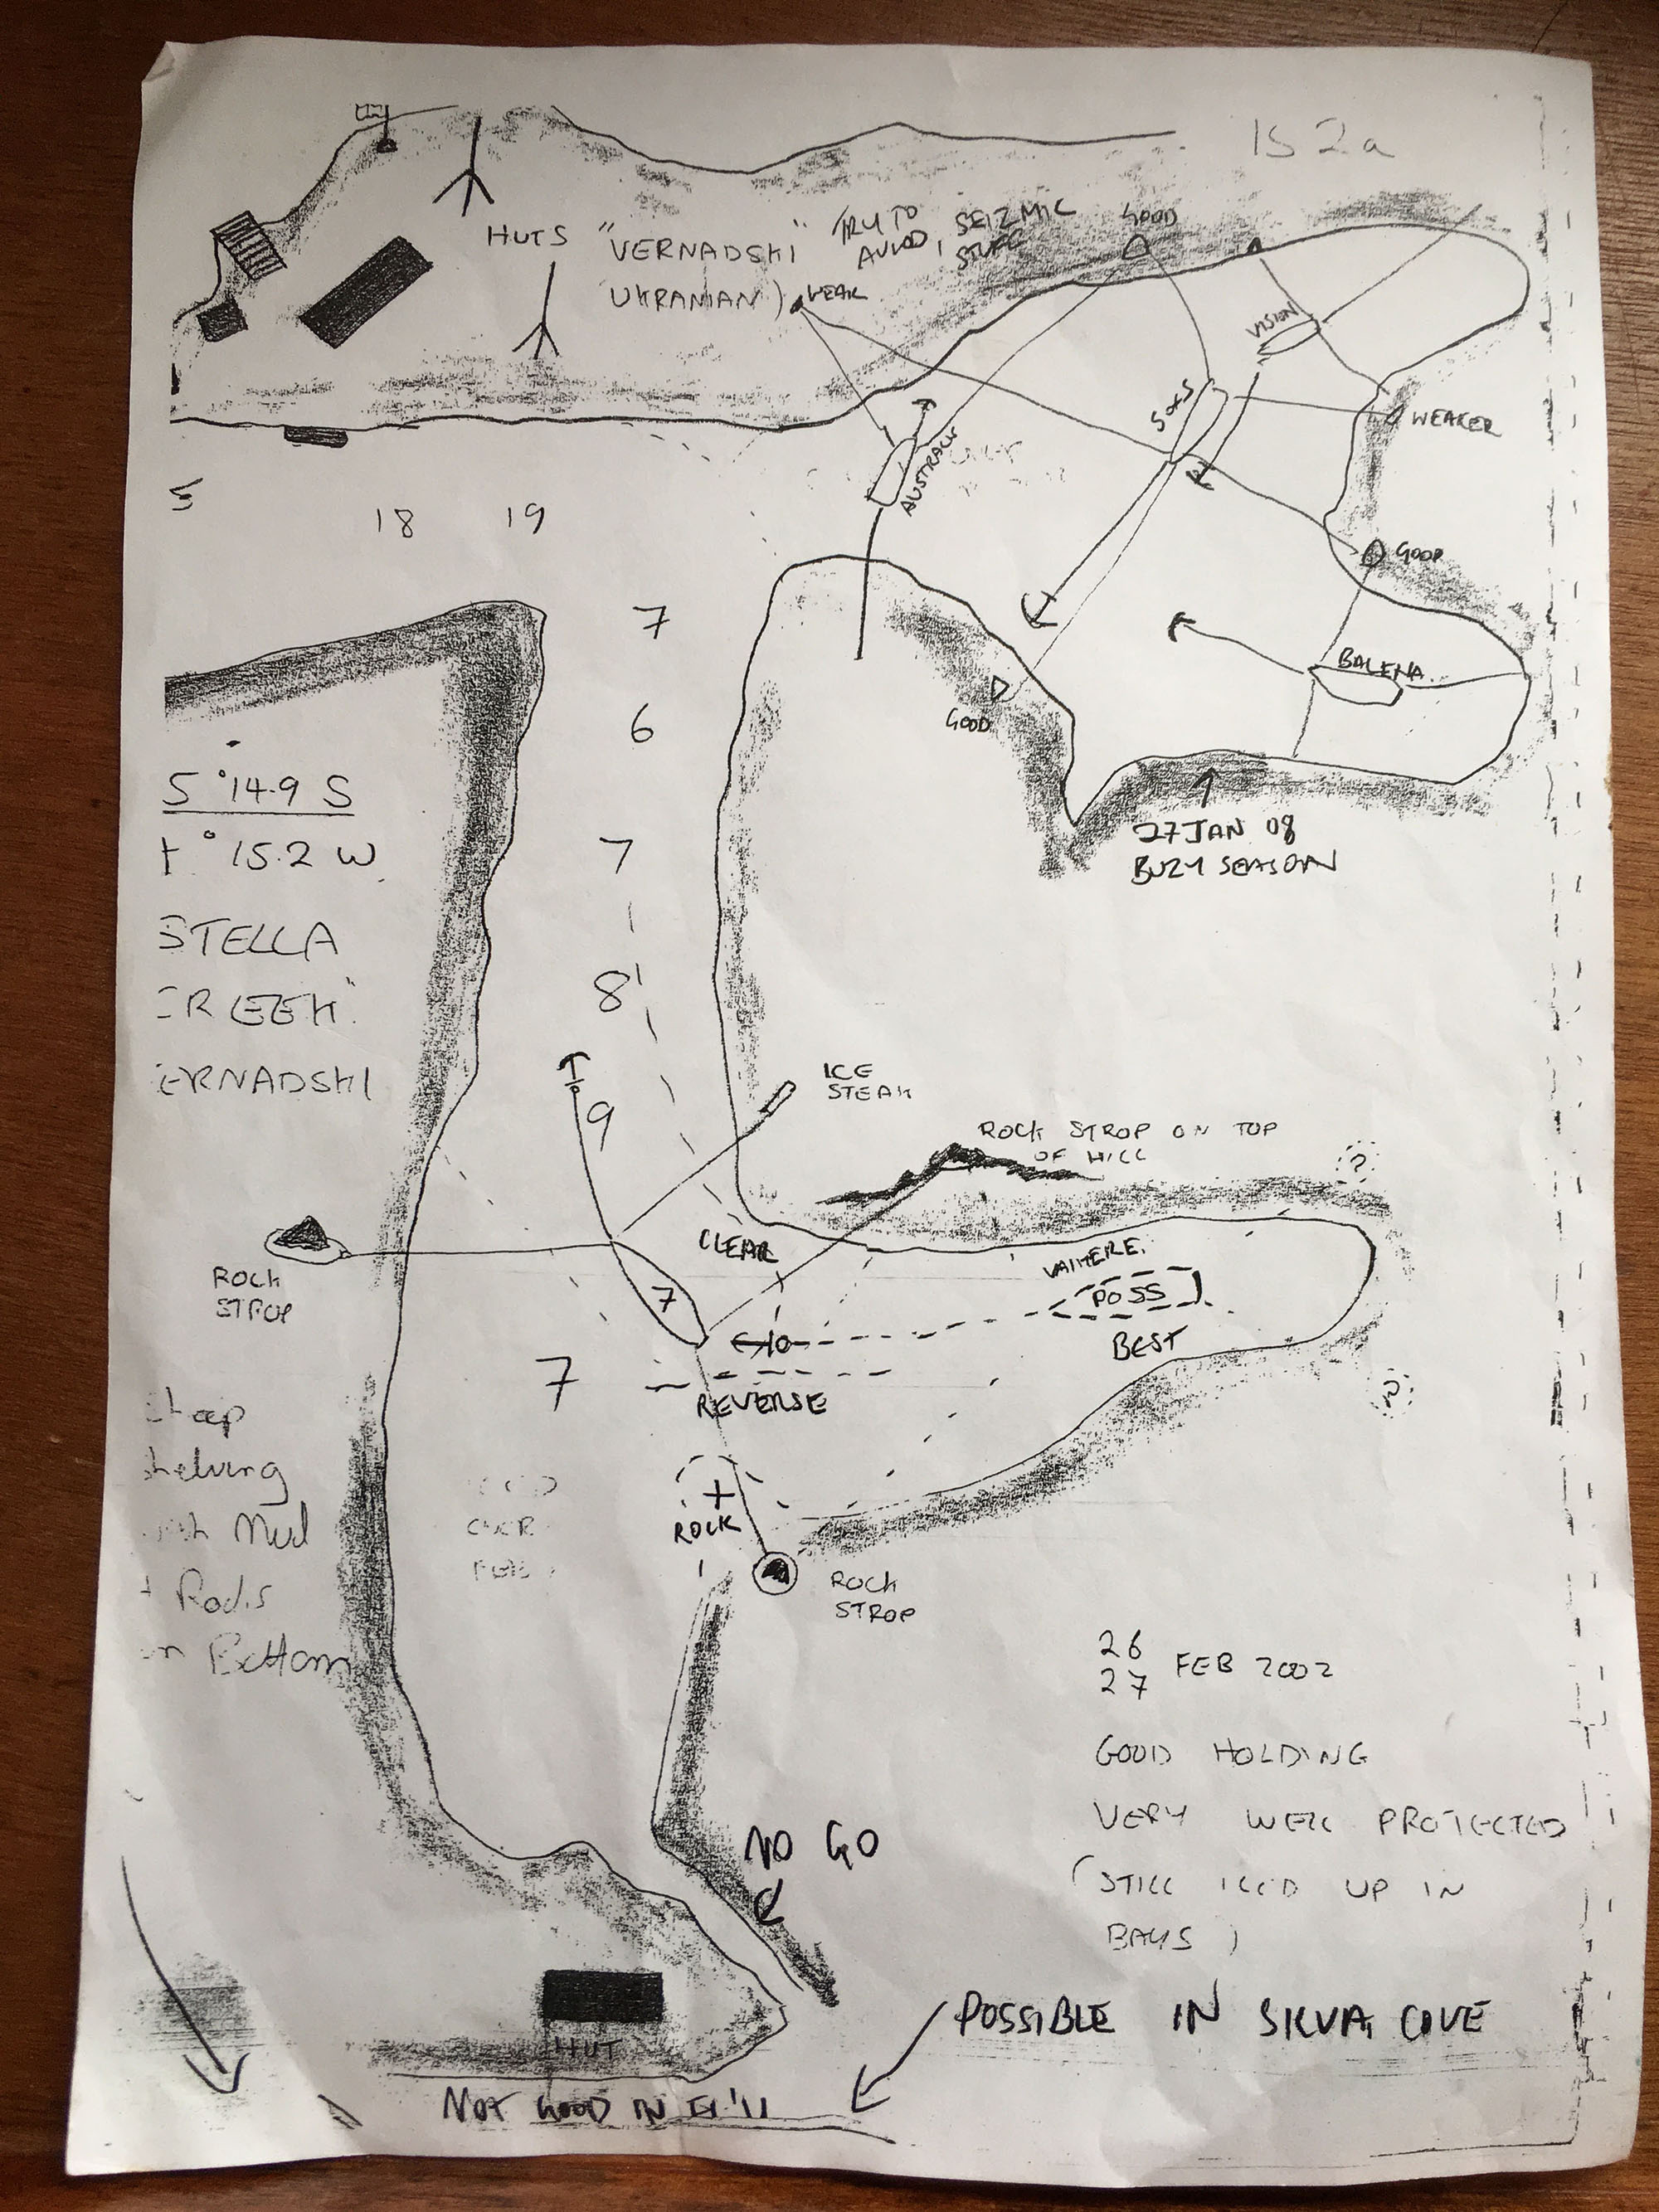 IS 2a
HUTS "VERNADSKI"
UKRANIAN)
TRY TO
AVOID,
SEIZMIC
STUFF
WEAK
GOOD
VISION
SOXS
WEAKER
AUSTRALIS
GOOD
5
18
19
7
BALENA
GOOD
6
5°14.9 S
°15.2 W
7
27 JAN 08
BUZY SEASON
STELLA
CREEK"
ERNADSKI
8
9
ICE
STEAK
ROCK STROP ON TOP
OF HILL
?
CLEAR
VAIHERE.
ROCK
STROP
7
POSS
BEST
7
REVERSE
?
helving
Mud
ROCK
OVER
on Bottom
ROCK
STROP
26
27 FEB 2002
GOOD HOLDING
VERY WELL PROTECTED
(STILL ICED UP IN
BAYS)
NO GO
HUT
POSSIBLE IN SILVA COVE
NOT GOOD IN